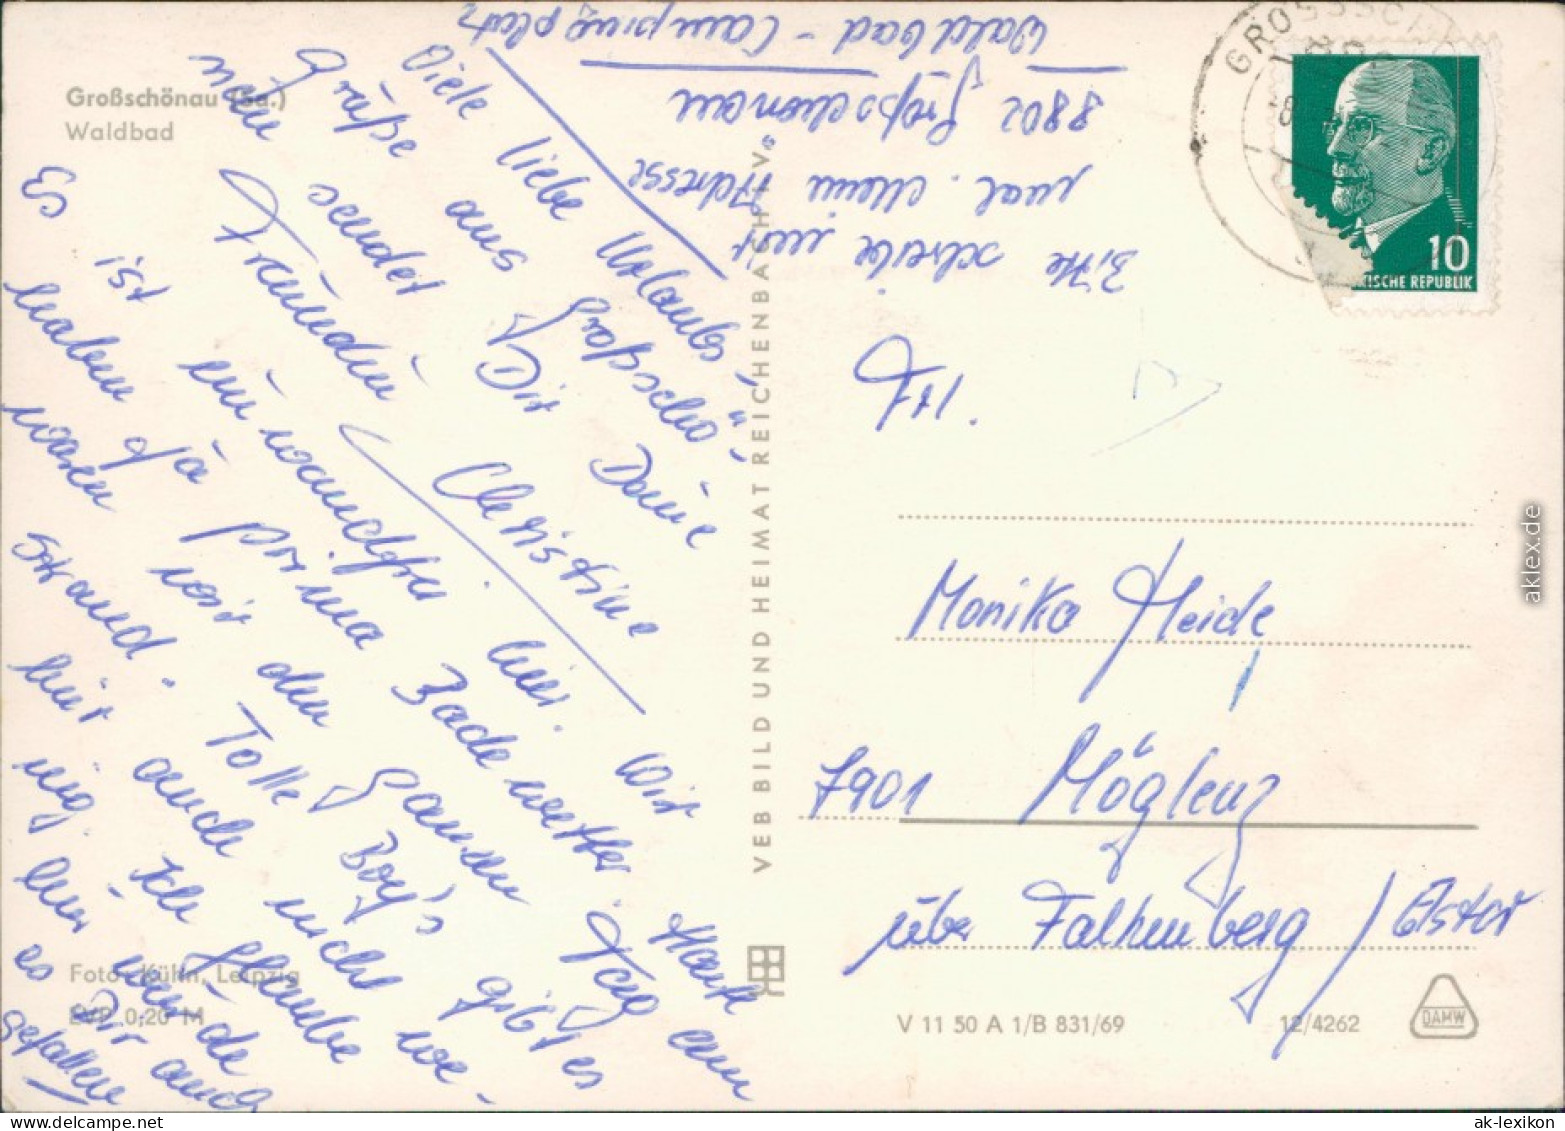 Großschönau (Sa.)
Waldbad
Viele liebe Urlaubs-
grüße aus Großschö-
nau sendet Dir Deine
Freundin Christine
Es ist einwandfrei hier. Wir
haben ja prima Badewetter. Heute
waren wir den ganzen Tag am
Strand. Tolle Boy's gibt es
hier auch nicht we-
nig. Ich glaube
hier würde
es Dir auch
gefallen
Foto: Kühn, Leipzig
EVP 0,20 M
VEB BILD UND HEIMAT REICHENBACH V.
Bitte schreibe mir
mal. Meine Adresse
8802 Großschönau
Waldbad - Campingplatz
GROSSSCH
10
ISCHE REPUBLIK
Frl.
Monika Heide
7901 Möglenz
über Falkenberg / Elster
V 11 50 A 1/B 831/69
12/4262
DAMW
aklex.de
ak-lexikon